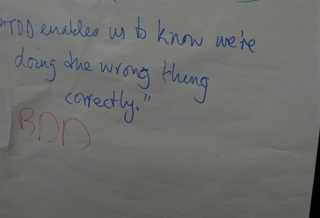 "TDD enables us to know we're
doing the wrong thing
correctly."
BDD